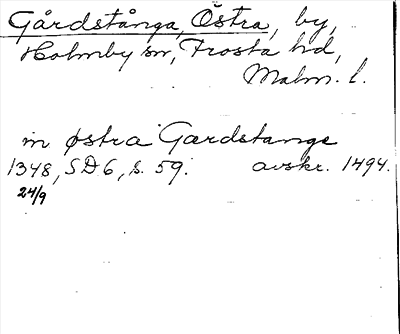 Gårdstånga, Östra, by,
Holmby sn, Frosta hd,
Malm. l.
in østra Gardstange
1348, SD 6, s. 59. avskr. 1494.
24/9